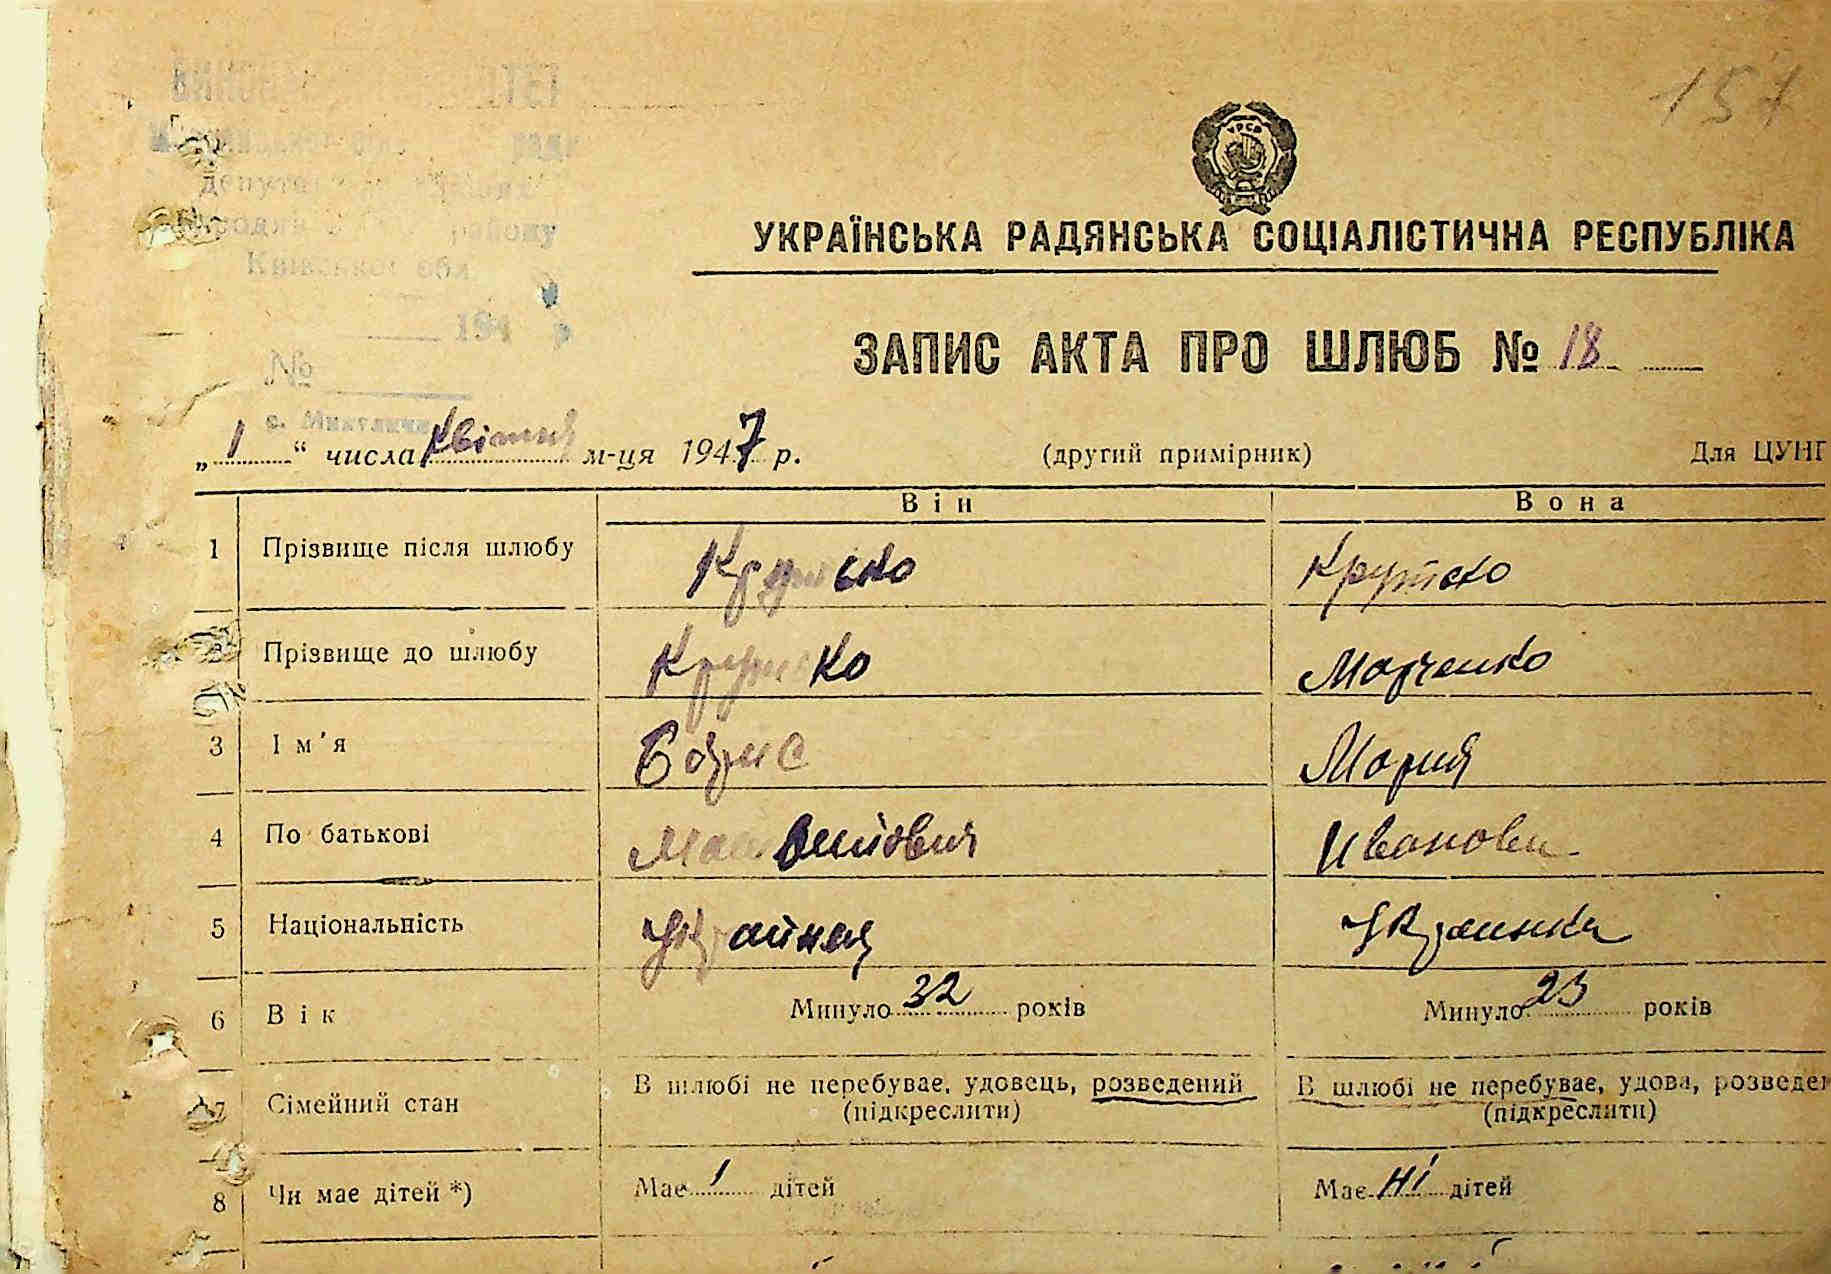 157
УКРАЇНСЬКА РАДЯНСЬКА СОЦІАЛІСТИЧНА РЕСПУБЛІКА
ЗАПИС АКТА ПРО ШЛЮБ № 18
району
Київської обл.
194 р
№
„1“ числа квітня м-ця 1947 р. (другий примірник) Для ЦУНГ
Він Вона
1 Прізвище після шлюбу
2 Прізвище до шлюбу Марченко
3 Ім'я Борис Мария
4 По батькові Матвійович Иванова
5 Національність Українец Украинка
6 Вік Минуло 32 років Минуло 23 років
7 Сімейний стан В шлюбі не перебуває, удовець, розведений В шлюбі не перебуває, удова, розведен
(підкреслити) (підкреслити)
8 Чи має дітей *) Має 1 дітей Має ні дітей